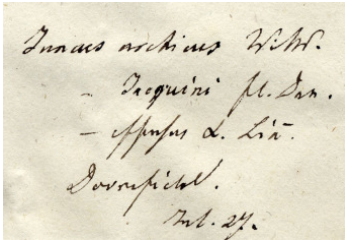 Juncus arcticus Willd.
– Jacquini fl. Dan.
– effusus L. Lin.
Dovrefield.
Jul. 27.